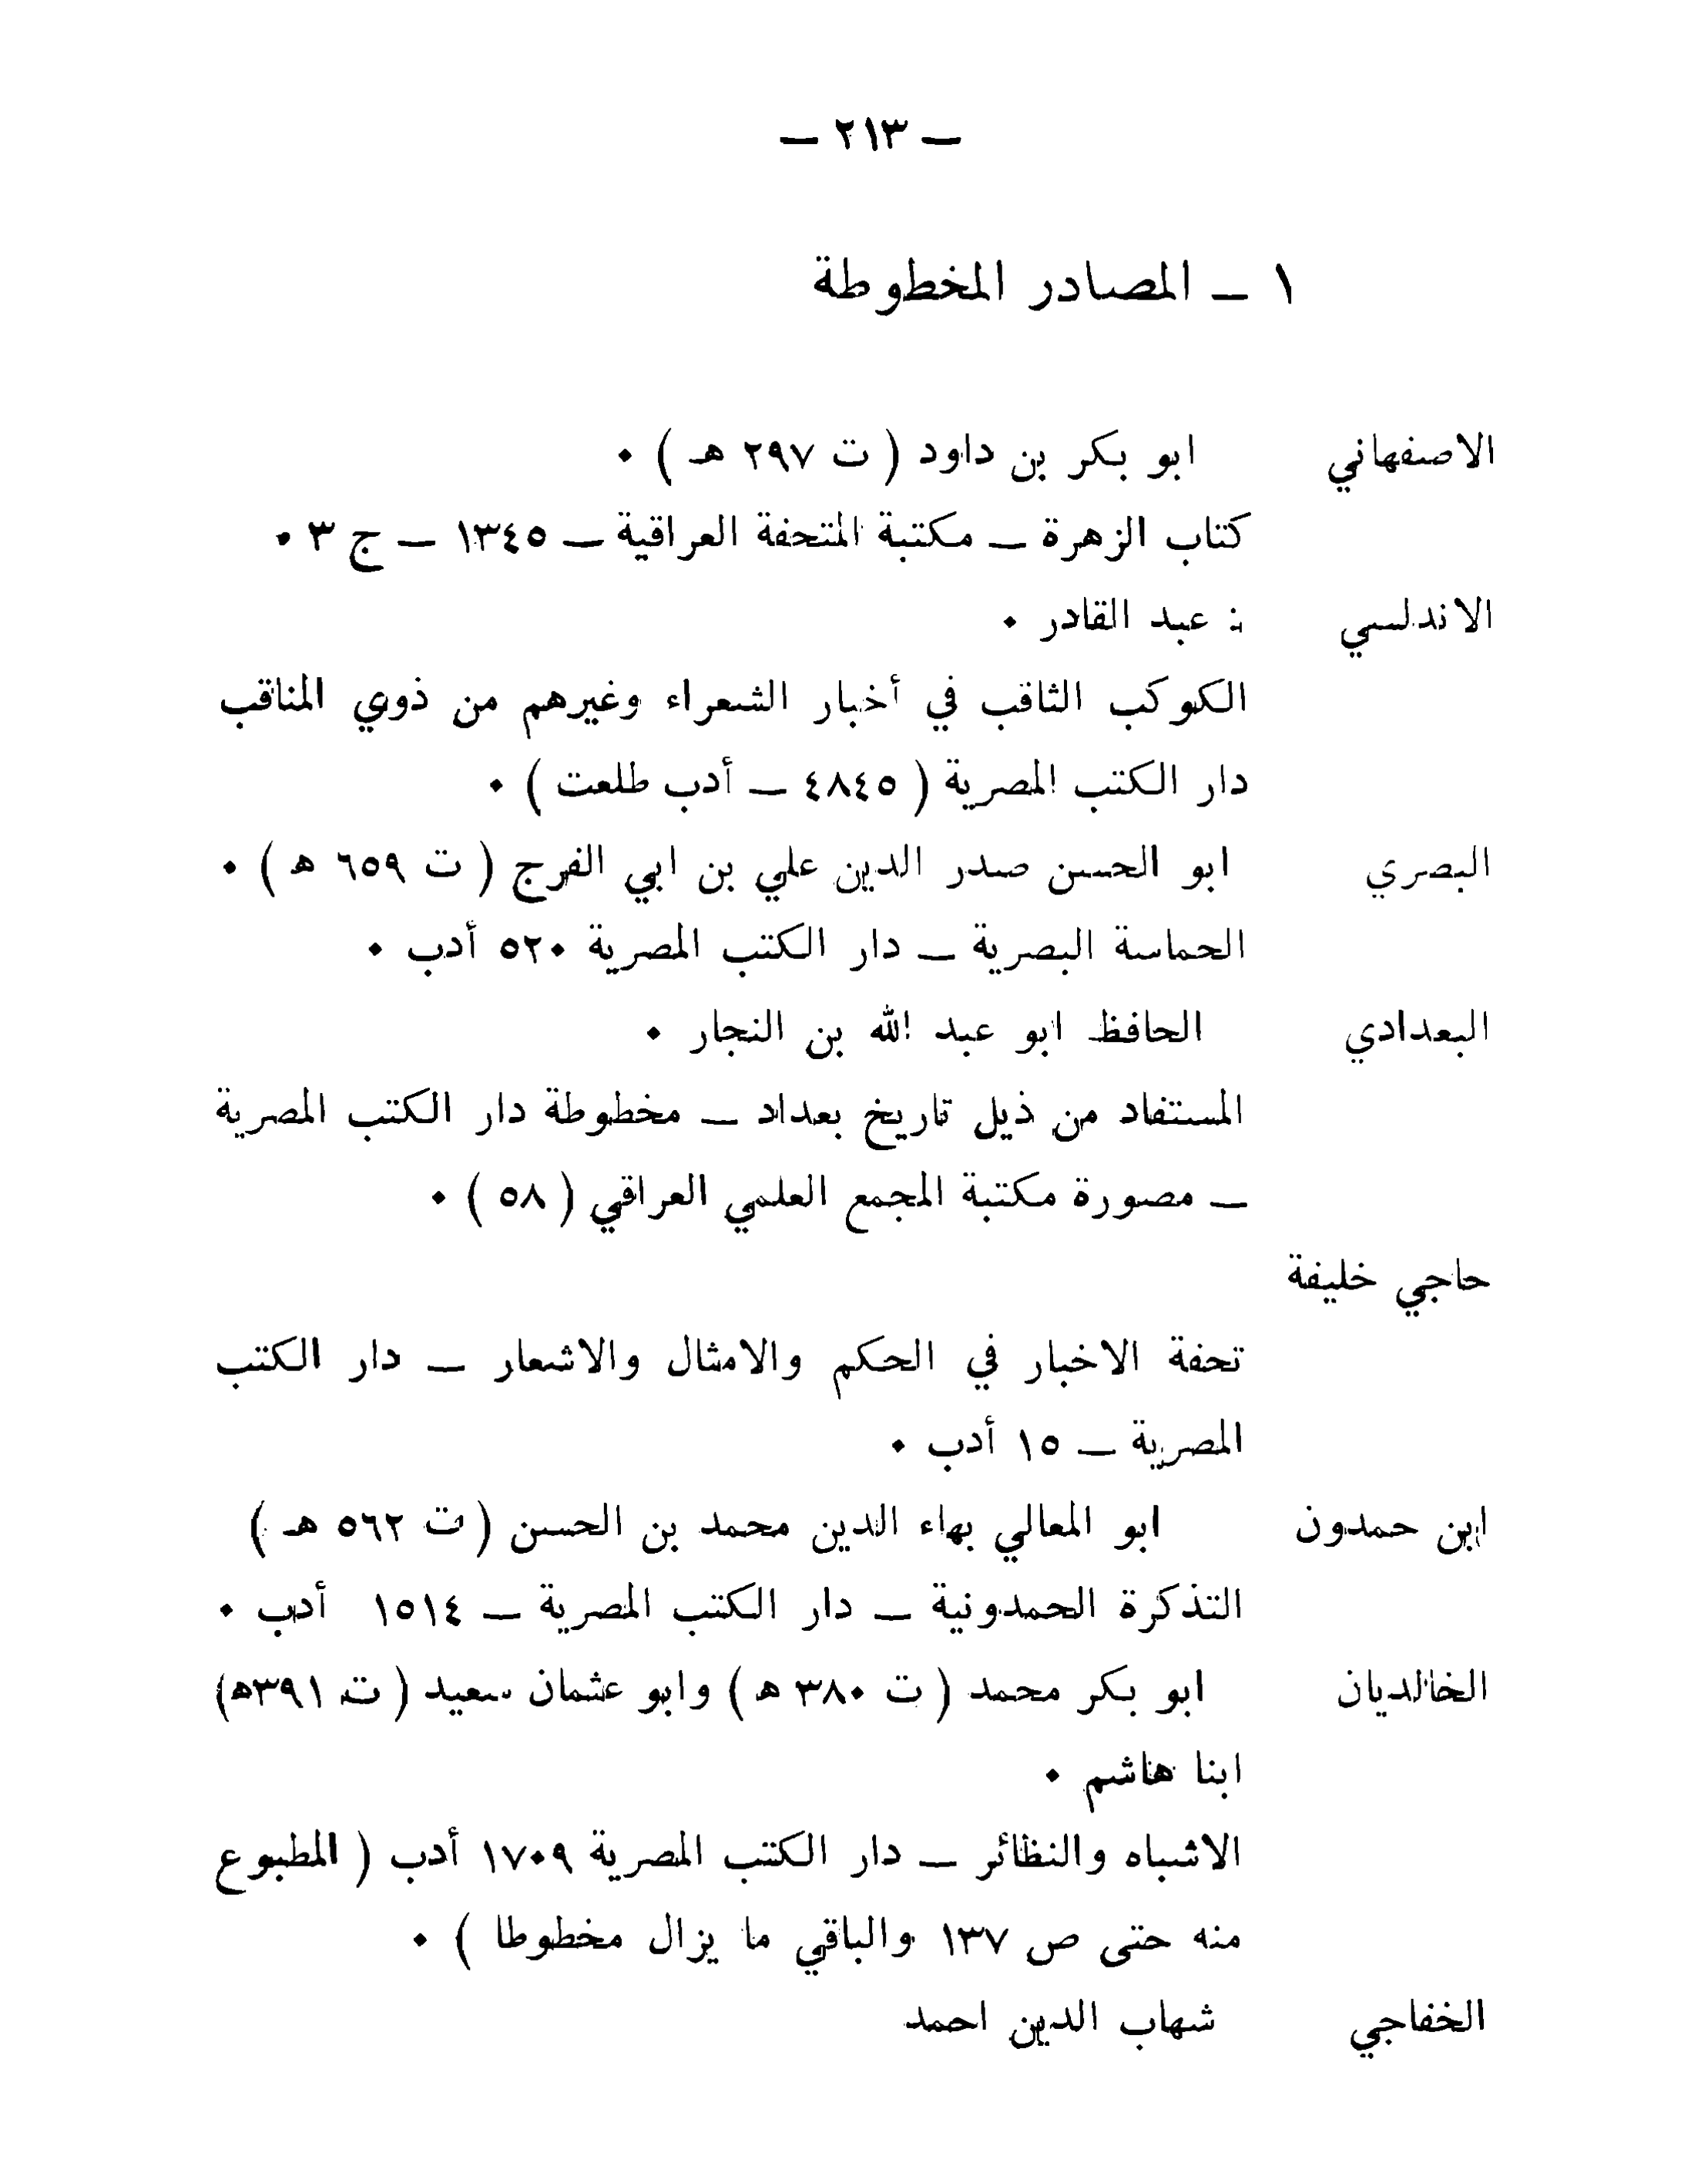 — ٢١٣ —
١ — المصادر المخطوطة
الاصفهاني ابو بكر بن داود ( ت ٢٩٧ هـ ) ٠
كتاب الزهرة — مكتبة المتحفة العراقية — ١٣٤٥ — ج ٣ ٠
الاندلسي : عبد القادر ٠
الكوكب الثاقب في أخبار الشعراء وغيرهم من ذوي المناقب
دار الكتب المصرية ( ٤٨٤٥ — أدب طلعت ) ٠
البصري ابو الحسن صدر الدين علي بن ابي الفرج ( ت ٦٥٩ هـ ) ٠
الحماسة البصرية — دار الكتب المصرية ٥٢٠ أدب ٠
البعدادي الحافظ ابو عبد الله بن النجار ٠
المستفاد من ذيل تاريخ بعداد — مخطوطة دار الكتب المصرية
— مصورة مكتبة المجمع العلمي العراقي ( ٥٨ ) ٠
حاجي خليفة
تحفة الاخبار في الحكم والامثال والاشعار — دار الكتب
المصرية — ١٥ أدب ٠
ابن حمدون ابو المعالي بهاء الدين محمد بن الحسن ( ت ٥٦٢ هـ )
التذكرة الحمدونية — دار الكتب المصرية — ١٥١٤ أدب ٠
الخالديان ابو بكر محمد ( ت ٣٨٠ هـ ) وابو عثمان سعيد ( ت ٣٩١هـ)
ابنا هاشم ٠
الاشباه والنظائر — دار الكتب المصرية ١٧٠٩ أدب ( المطبوع
منه حتى ص ١٣٧ والباقي ما يزال مخطوطا ) ٠
الخفاجي شهاب الدين احمد